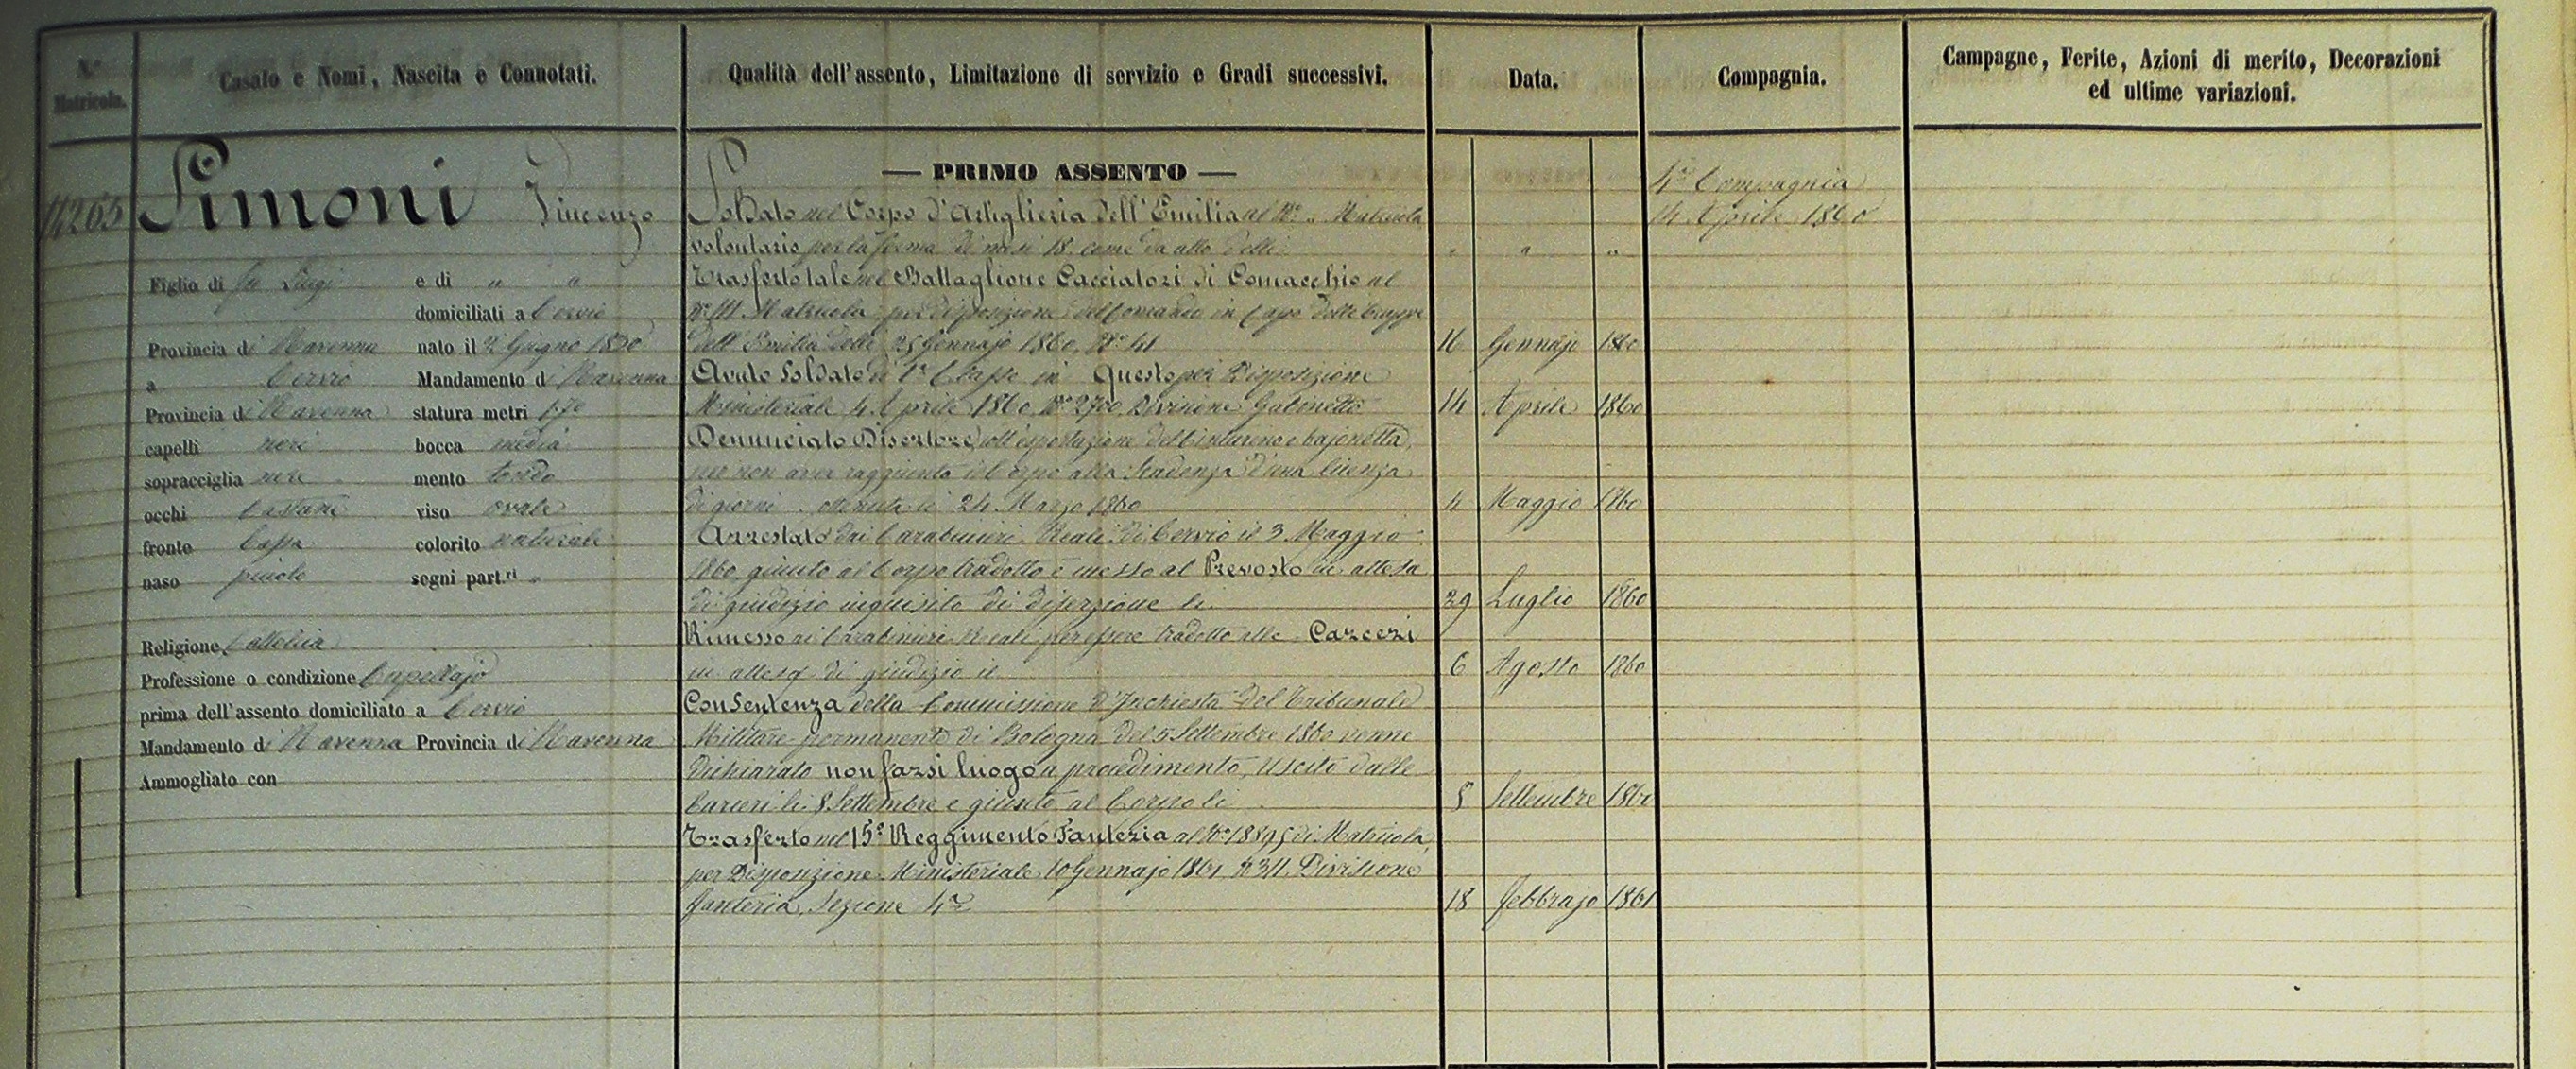 N.° Matricola.
Casato e Nomi, Nascita e Connotati.
Qualità dell'assento, Limitazione di servizio e Gradi successivi.
Data.
Compagnia.
Campagne, Ferite, Azioni di merito, Decorazioni
ed ultime variazioni.
Simoni Vincenzo
Figlio di fu Luigi e di " "
domiciliati a Cervio
Provincia di Ravenna nato il 2 Giugno 1830
a Cervio Mandamento di Ravenna
Provincia di Ravenna statura metri 1.70
capelli neri bocca media
sopracciglia nere mento tondo
occhi castani viso ovale
fronte bassa colorito naturale
naso piccolo segni part.ri "
Religione Cattolica
Professione o condizione Capellajo
prima dell'assento domiciliato a Cervio
Mandamento di Ravenna Provincia di Ravenna
Ammogliato con
— PRIMO ASSENTO —
Soldato nel Corpo d'Artiglieria dell'Emilia al N.° " Matricola
volontario per la ferma di mesi 18 come da atto delli " " "
Trasferto tale nel Battaglione Cacciatori di Comacchio al
Matricola per disposizione del Comando in Capo delle truppe
dell'Emilia delli 25 Gennajo 1860, N.° 41 16 Gennajo 1860
Avuto Soldato di 1.a Classe in Questo per Disposizione
Ministeriale 4 Aprile 1860 N.° 2700 Divisione Gabinetto 14 Aprile 1860
Denunciato Disertore coll'esportazione del cinturino e bajonetta,
per non aver raggiunto il Corpo alla Scadenza d'una licenza
di giorni . ottenuta il 24 Marzo 1860 4 Maggio 1860
Arrestato dai Carabinieri Reali di Cervio il 3 Maggio
1860 giunto al Corpo tradotto e messo al Prevosto in attesa
di giudizio inquisito di diserzione li 29 Luglio 1860
Rimesso ai Carabinieri Reali per essere tradotto alle Carceri
in attesa di giudizio il 6 Agosto 1860
Con Sentenza della Commissione d'Inchiesta del Tribunale
Militare permanente di Bologna del 5 Settembre 1860 venne
dichiarato non farsi luogo a procedimento, uscito dalle
Carceri li 8 Settembre e giunto al Corpo li 8 Settembre 1860
Trasferto nel 15° Reggimento Fanteria al N.° 18895 di Matricola,
per Disposizione Ministeriale 10 Gennajo 1861 Divisione
fanteria, Sezione 4.a 18 febbrajo 1861
4.a Compagnia
14 Aprile 1860